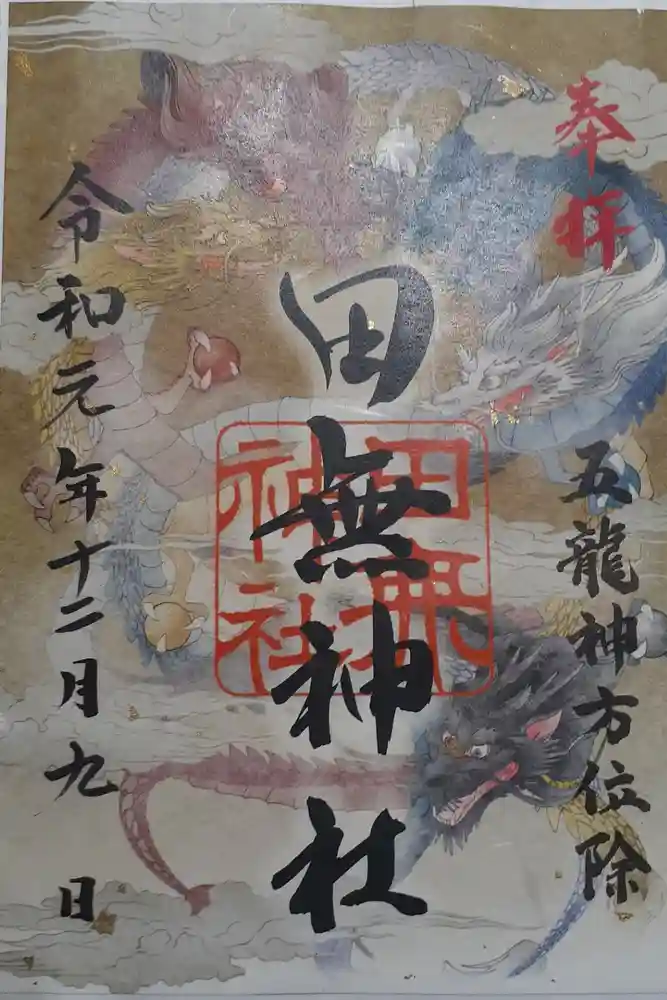 奉拝
五龍神方位除
田無神社
田無神社
令和元年十二月九日